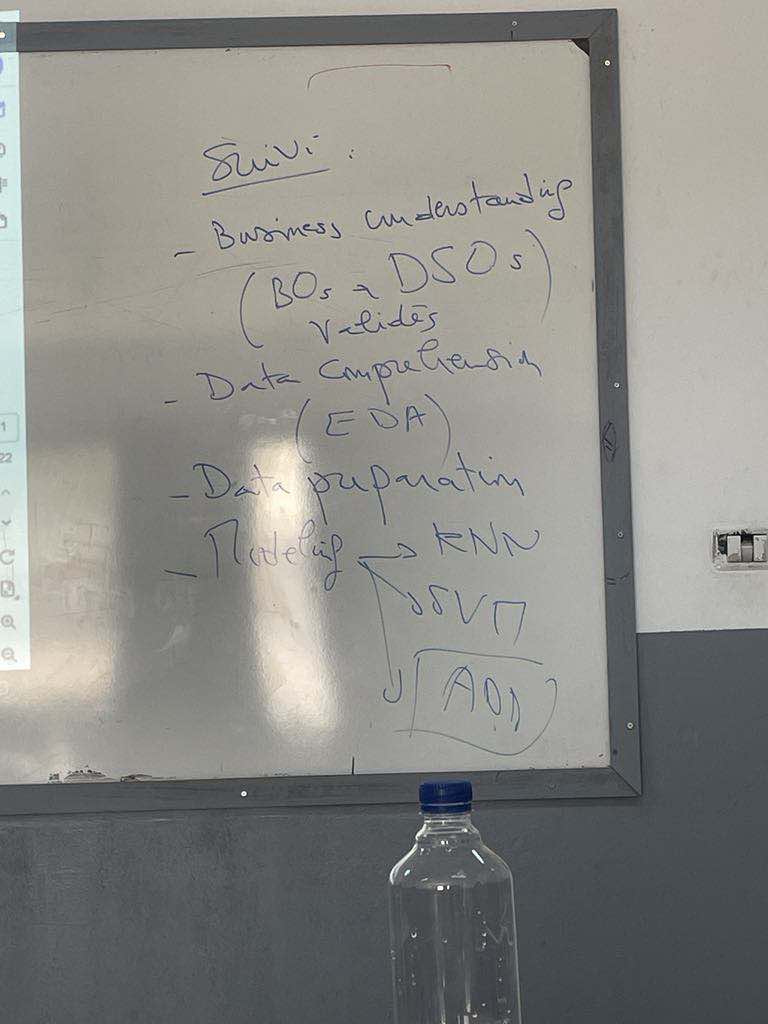 Suivi :
- Business understanding
(BOs DSOs
validés)
- Data comprehension
(EDA)
- Data preparation
- Modeling → KNN
SVM
1
22